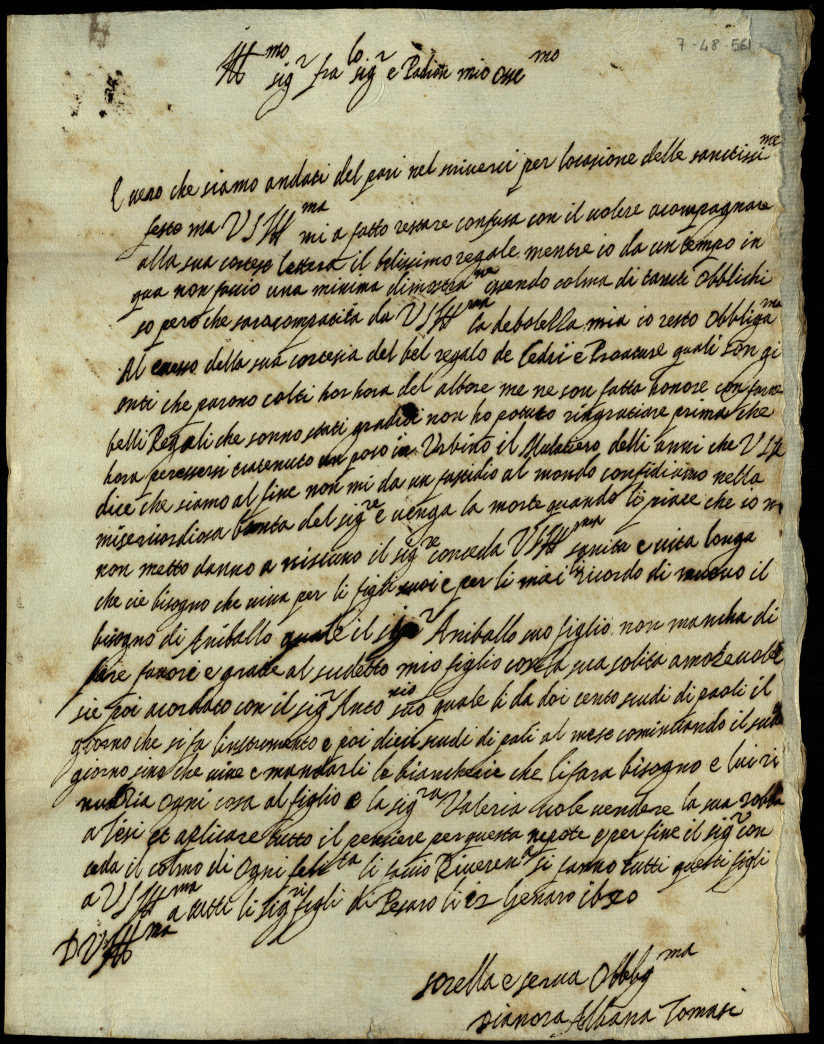 7-48-561
Ill mo sig r fra lo sig r e Padron mio osse mo
E vero che siamo andati del pari nel scriverci per locasione delle sanctissi me
feste ma VS Ill ma mi a fatto restare confusa con il volere acompagnare
alla sua cortese lettera il belissimo regale mentre io da un tempo in
qua non facio una minima dimostra ne esendo colma di tanti obblichi
so pero che sara compatita da VS Ill ma la debolezza mia io resto obbliga ma
Al ecesso della sua cortesia del bel regalo de Cedri e Provature quali son gi
onti che parono colti hor hora del albore me ne son fatta honore con farne
belli Regali che sonno stati graditi non ho potuto ringratiare prima che
hora per essersi tratenuto un poco in Urbino il Mulatiero delli anni che VS Ill
dice che siamo al fine non mi da un fastidio al mondo confidiamo nella
misericordiosa bonta del sig re e venga la morte quando li piace che io n
non metto danno a nisciuno il sig re conceda VS Ill ma sanita e vita longa
che cie bisogno che viva per li figli suoi e per li miei li ricordo di nuovo il
bisogno di Aniballo quale il sig r Aniballo suo figlio non mancha di
fare favori e gratie al sudetto mio figlio con la sua solita amorevole
sie poi acordato con il sig r Anto nio suo quale li da doi cento scudi di paoli il
giorno che si fa linstrumento e poi dieci scudi di pali al mese cominciando il sud
giorno sino che vive e mandarli le biancherie che li fara bisogno e lui ri
nuntia ogni cosa al figlio e la sig ra Valeria vole vendere la sua robba
a Iesi et aplicare tutto il pensiere per questa nepote e per fine il sig r con
ceda il colmo di ogni felici ta li facio Riveren za si fanno tutti questi figli
a VS Ill ma a tutti li sig ri figli di Pesaro li 12 Genaro 1620
D VS Ill ma
sorella e serva Obblig ma
Dianora Albana Tomasi